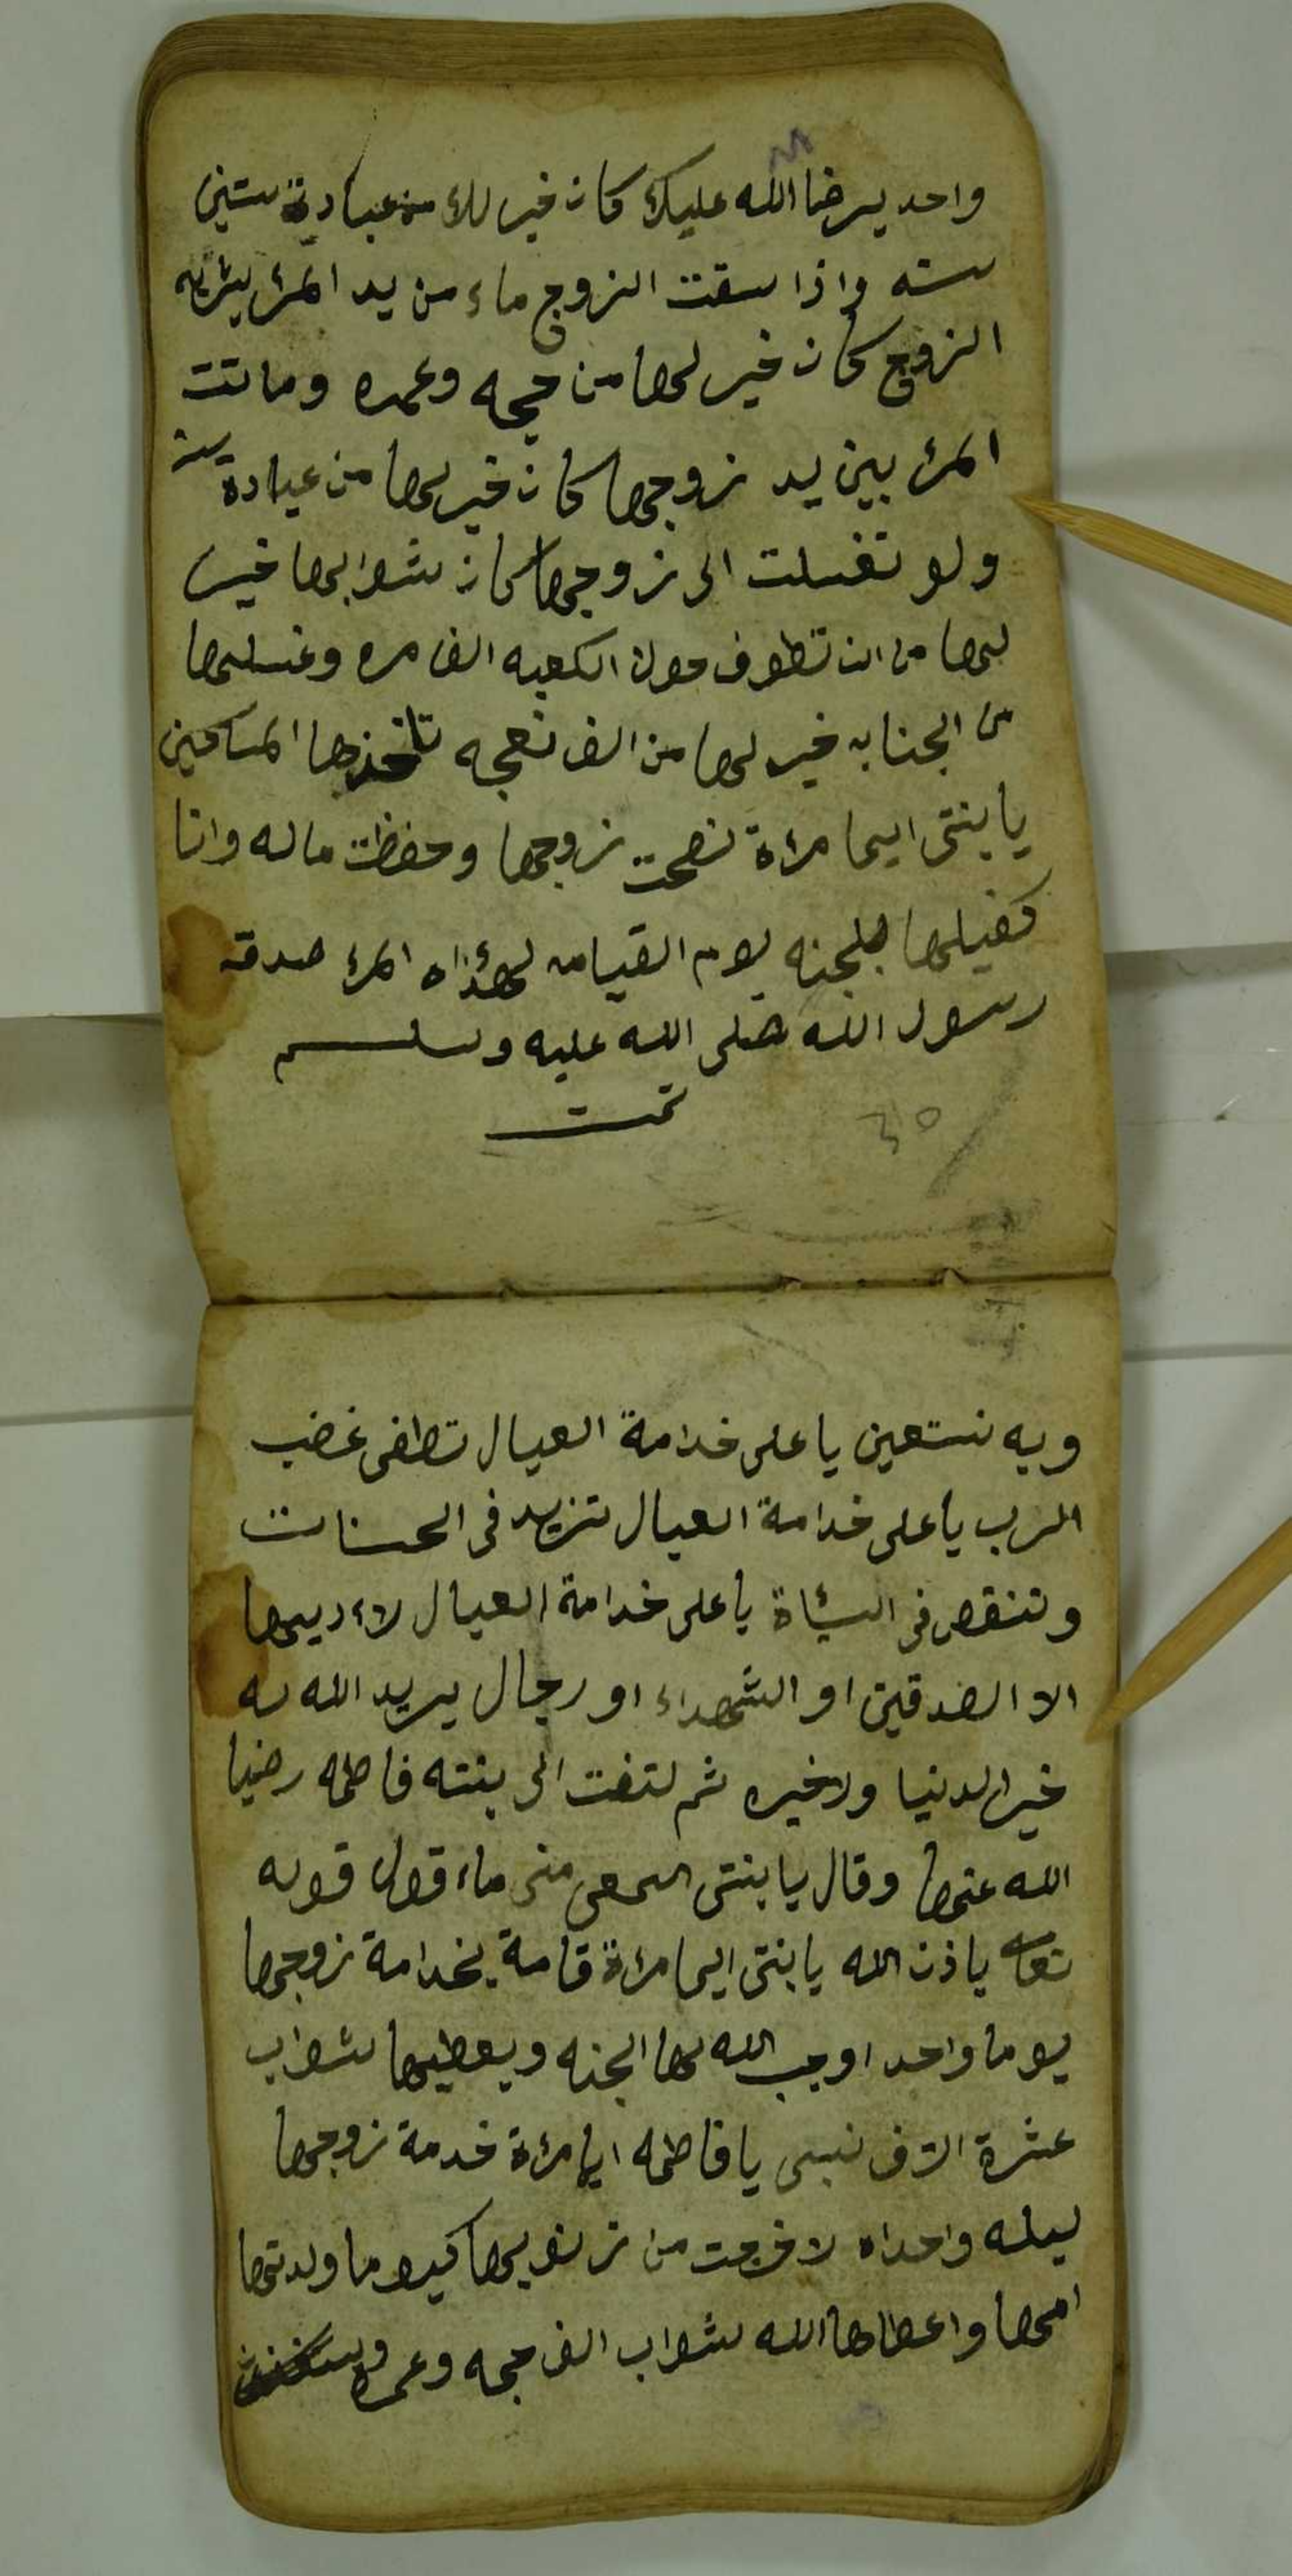 واحد يرضا الله عليك كان خير لك من عبادة ستين
سنه واذا سقت الزوج ماء من يد المرء يشربه
الزوج كان خير لها من حجه وعمره وماتت
المرء بين يد زوجها كان خير لها من عبادة سنه
ولو تغسلت الى زوجها كان ثوابها خير
لها من ان تطوف حول الكعبه الف مره وغسلها
من الجنابه خير لها من الف نعجه تاخذها المساكين
يا بنتي ايما مرءة نصحت زوجها وحفظت ماله وانا
كفيلها بلجنه يوم القيامه لهذاه المرء صدقة
رسول الله صلى الله عليه وسلم
تمت
٣٥
وبه نستعين يا على خدامة العيال تطفى غضب
الرب يا على خدامة العيال تزيد في الحسنات
وتنقص في السئاة يا على خدامة العيال لاءديها
الا الصدقين او الشهداء او رجال يريد الله له
خير الدنيا ولاخيره ثم لتفت الى بنته فاطمه رضيا
الله عنها وقال يا بنتي اسمعى منى ماء قول قوله
تعا باذن الله يا بنتي ايما مرءة قامة بخدامة زوجها
يوما واحد اوجب الله لها الجنه ويعطيها ثواب
عشرة الاف نبى يا فاطمه ايا مرءة خدمة زوجها
ليله واحداه لا خرجت من زنوبها كيوم ما ولدتها
امها واعطاها الله ثواب الف حجه وعمره